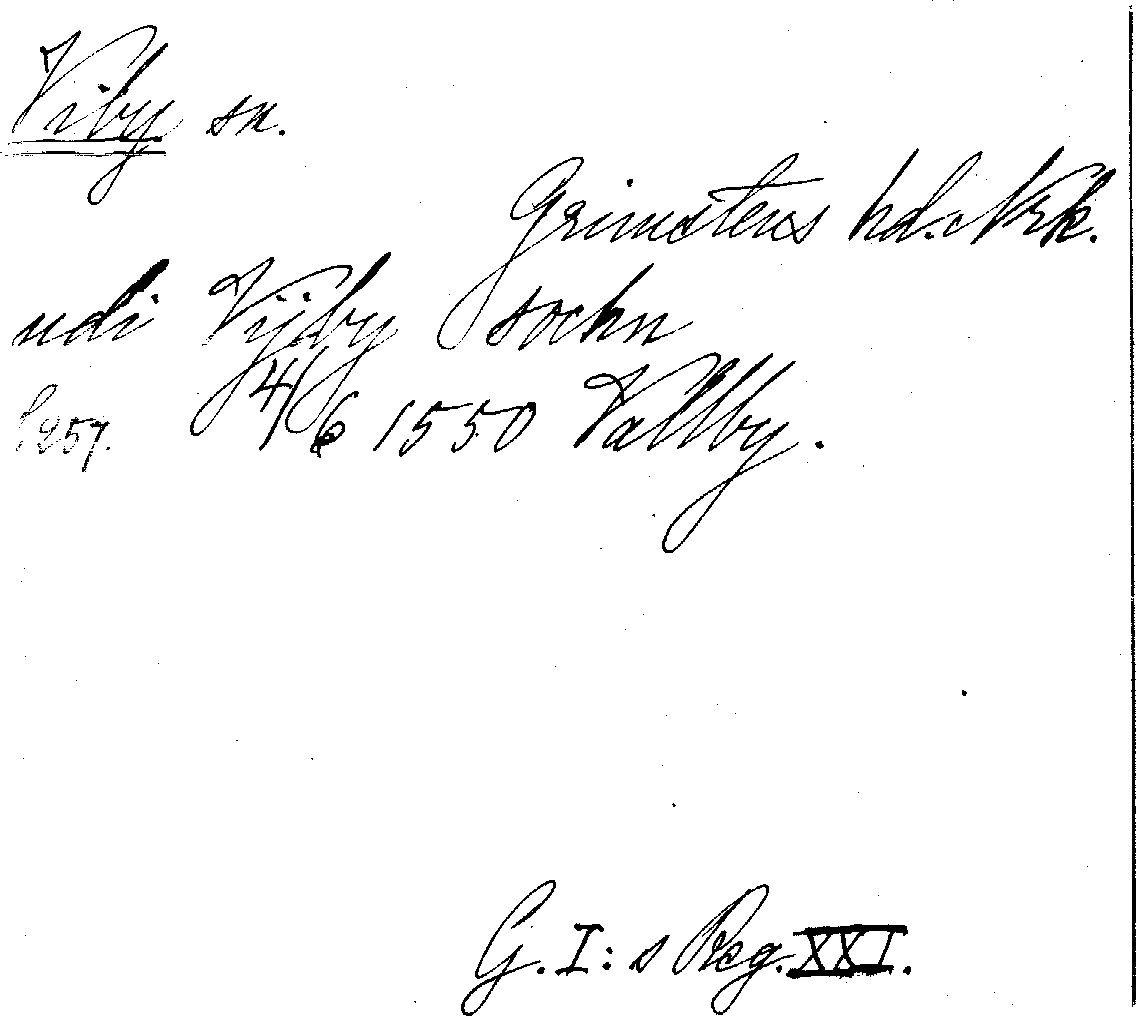 Viby sn.
Grimstens hd. Nrk.
udi Vijby sochn
s 257. 4/6 1550 Vallby.
G. I:s Reg. XXI.